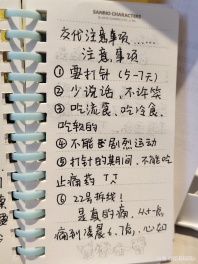 SANRIO CHARACTERS
交代注意事项......
注意事项
①要打针(5-7天)
②少说话，不许笑
③吃流食、吃冷食、
吃软的
④不能剧烈运动
⑤打针的期间，不能吃
止痛药
⑥22号拆线!
是真的痛，
痛到凌晨6.7点，心